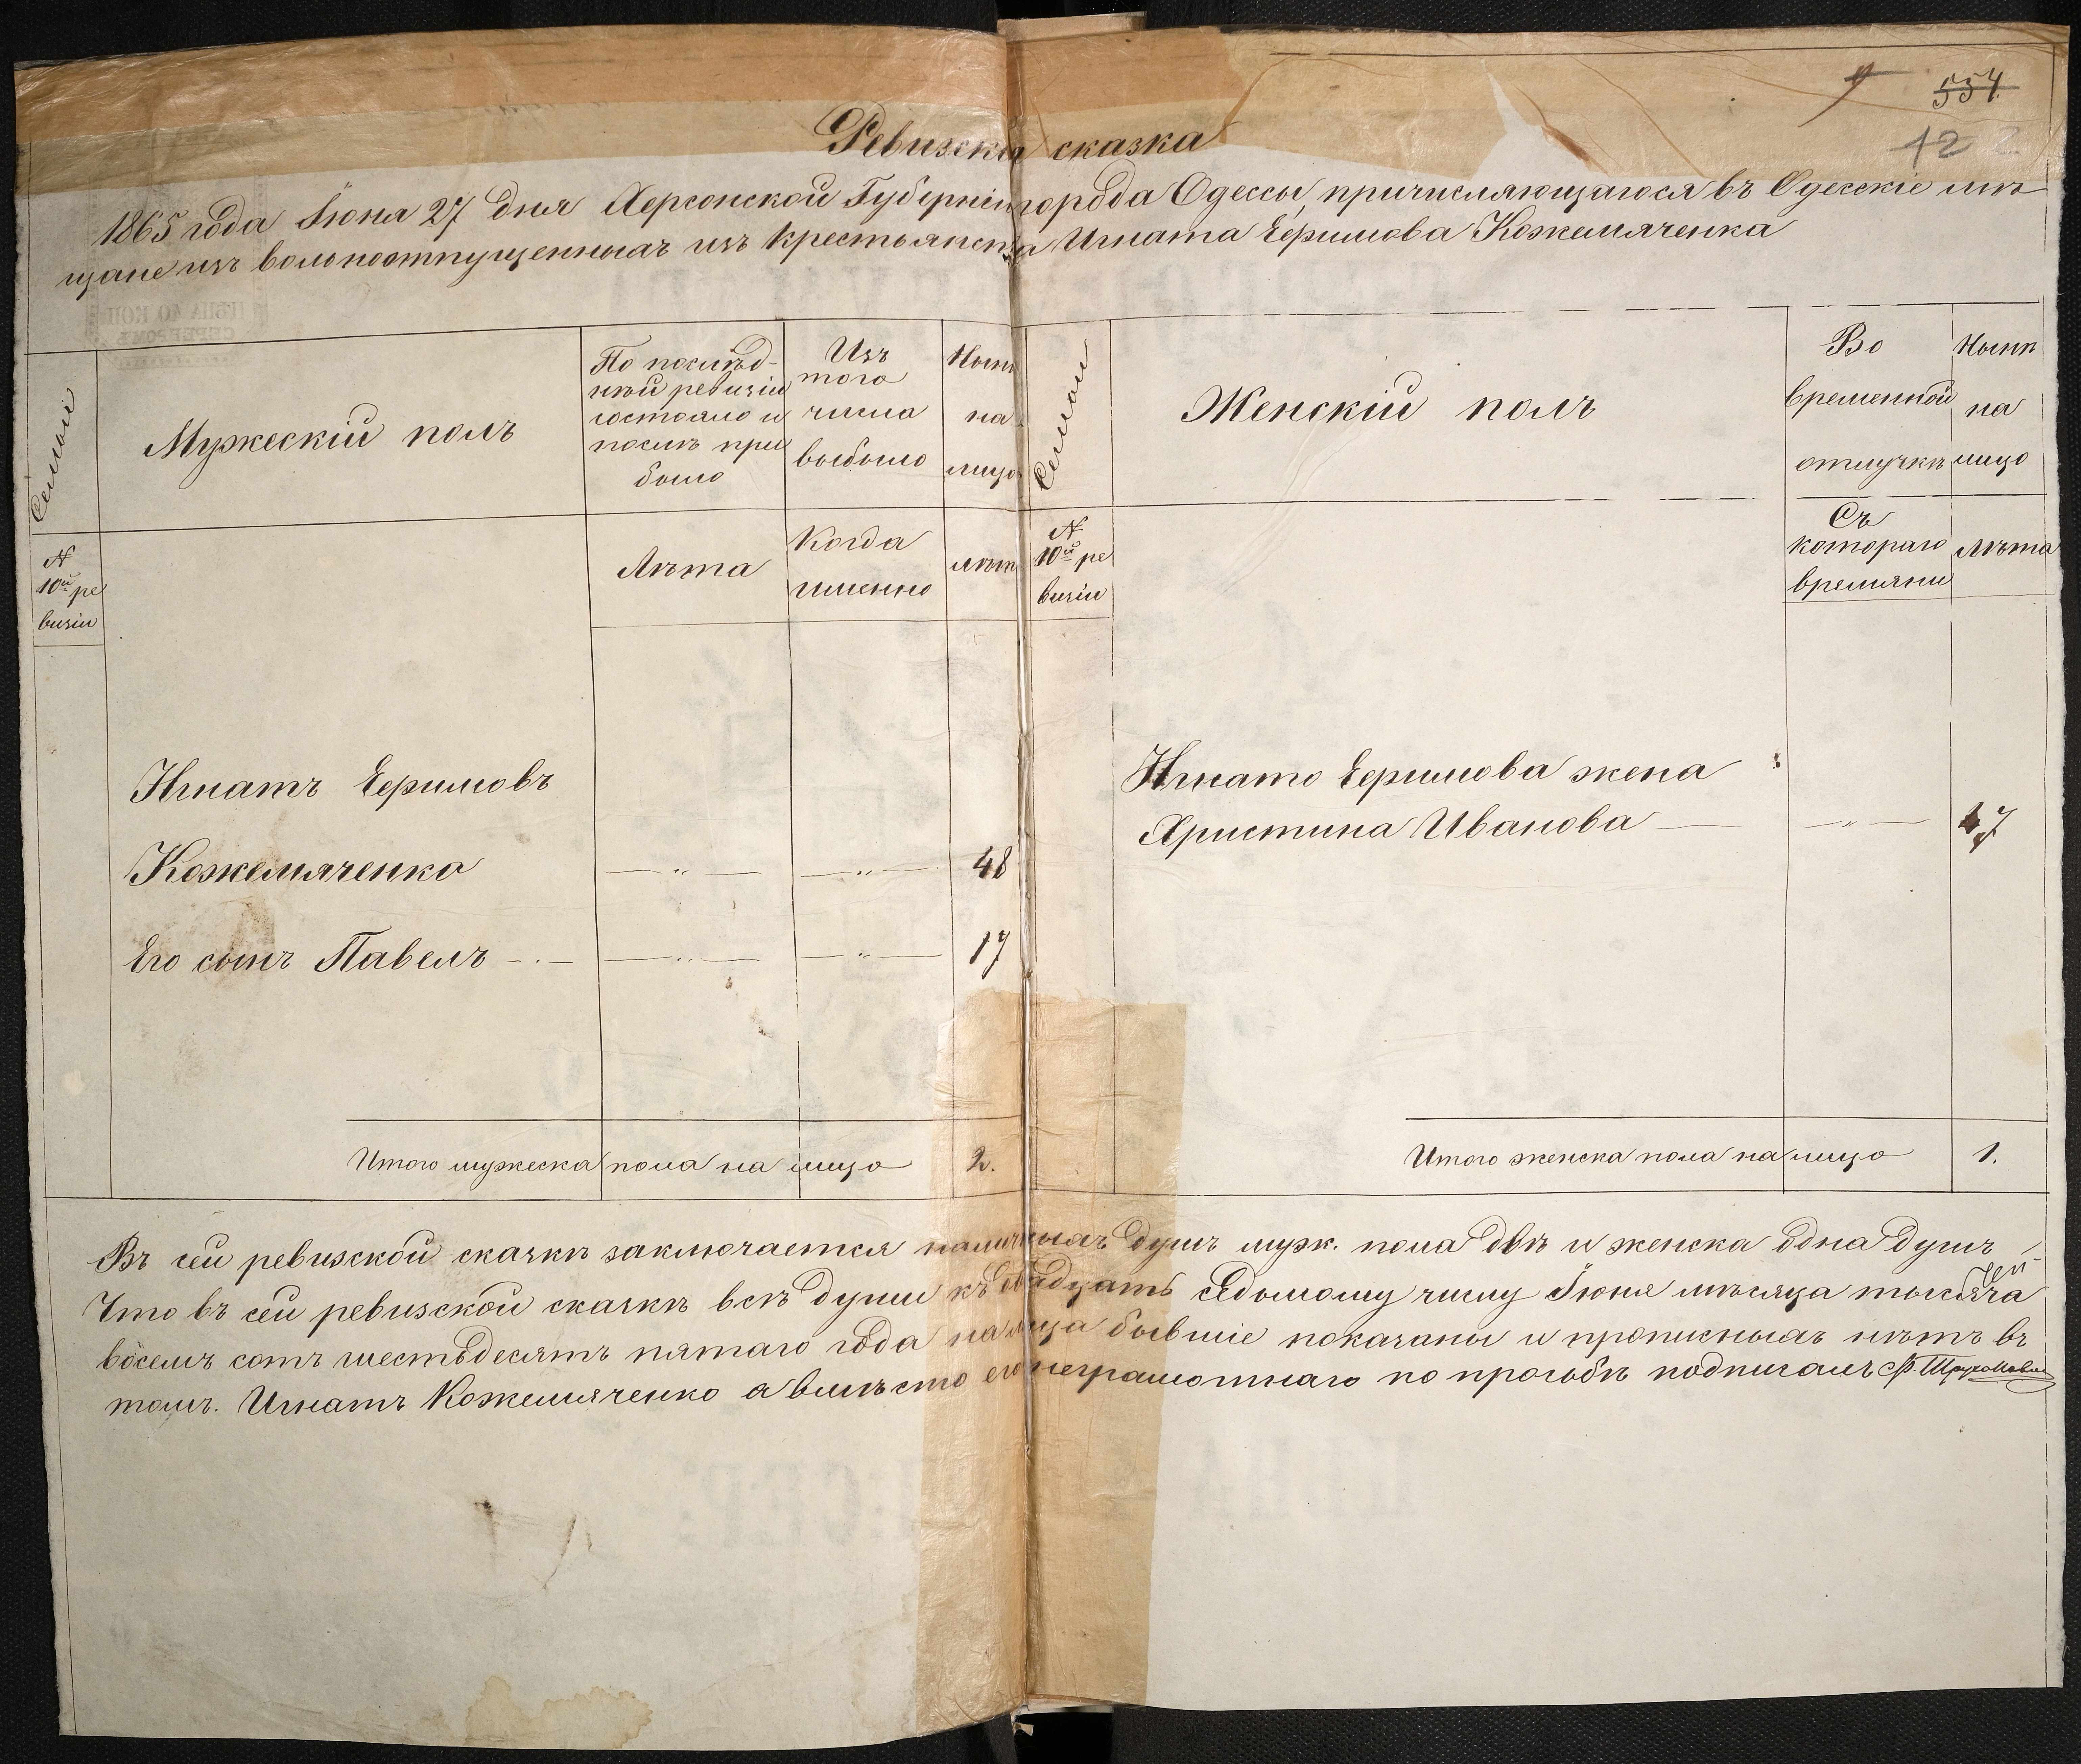 554
12
Ревизская сказка
1865 года Іюня 27 дня Херсонской Губерніи города Одессы, причисляющагося въ Одесскіе мѣ
щане изъ вольноотпущенныхъ изъ крестьянства Игната Ефимова Кожемяченка
Семьи
Мужескій полъ
По послѣд-
ней ревизіи
состояло и
послѣ при
было
Изъ
того
числа
выбыло
Нынѣ
на
лицо
Семьи
Женскій полъ
Во
временной
отлучкѣ
Нынѣ
на
лицо
№
10й ре
визіи
Лѣта
Когда
именно
лѣта
№
10й ре
визіи
Съ
котораго
времяни
Лѣта
Игнатъ Ефимовъ
Кожемяченко — „ — — „ — 48
Его сынъ Павелъ — . — — „ — — „ — 17
Игнато Ефимова жена
Христина Иванова — — „ — 47
Итого мужеска пола на лицо 2.
Итого женска пола на лицо 1.
Въ сей ревизской сказкѣ заключается наличныхъ душъ муж. пола двѣ и женска одна душъ
Что въ сей ревизской сказкѣ всѣ души къ двадцать седьмому числу Іюня мѣсяца тысяча
восемь сотъ шестьдесятъ пятаго года на лица бывшіе показаны и прописныхъ нѣтъ въ
томъ. Игнатъ Кожемяченко а вмѣсто его неграмотнаго по прозьбѣ подписалъ